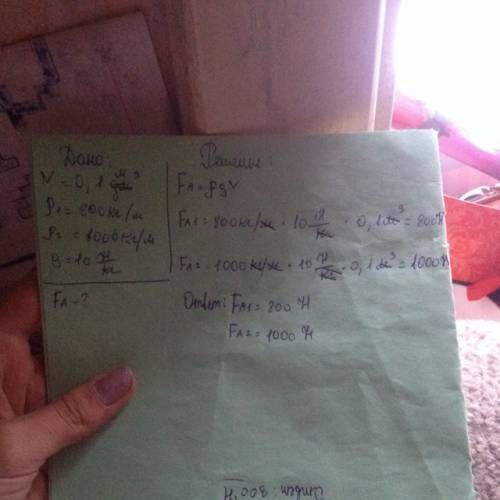 Дано:
V = 0,1 м³
ρ1 = 800 кг/м
ρ2 = 1000 кг/м
g = 10 Н/кг
FA - ?
Решение:
FA = ρgV
FA1 = 800 кг/м · 10 Н/кг · 0,1 м³ = 800 Н
FA = 1000 кг/м · 10 Н/кг · 0,1 м³ = 1000 Н
Ответ: FA1 = 800 Н
FA2 = 1000 Н
Ответ: 800 Н